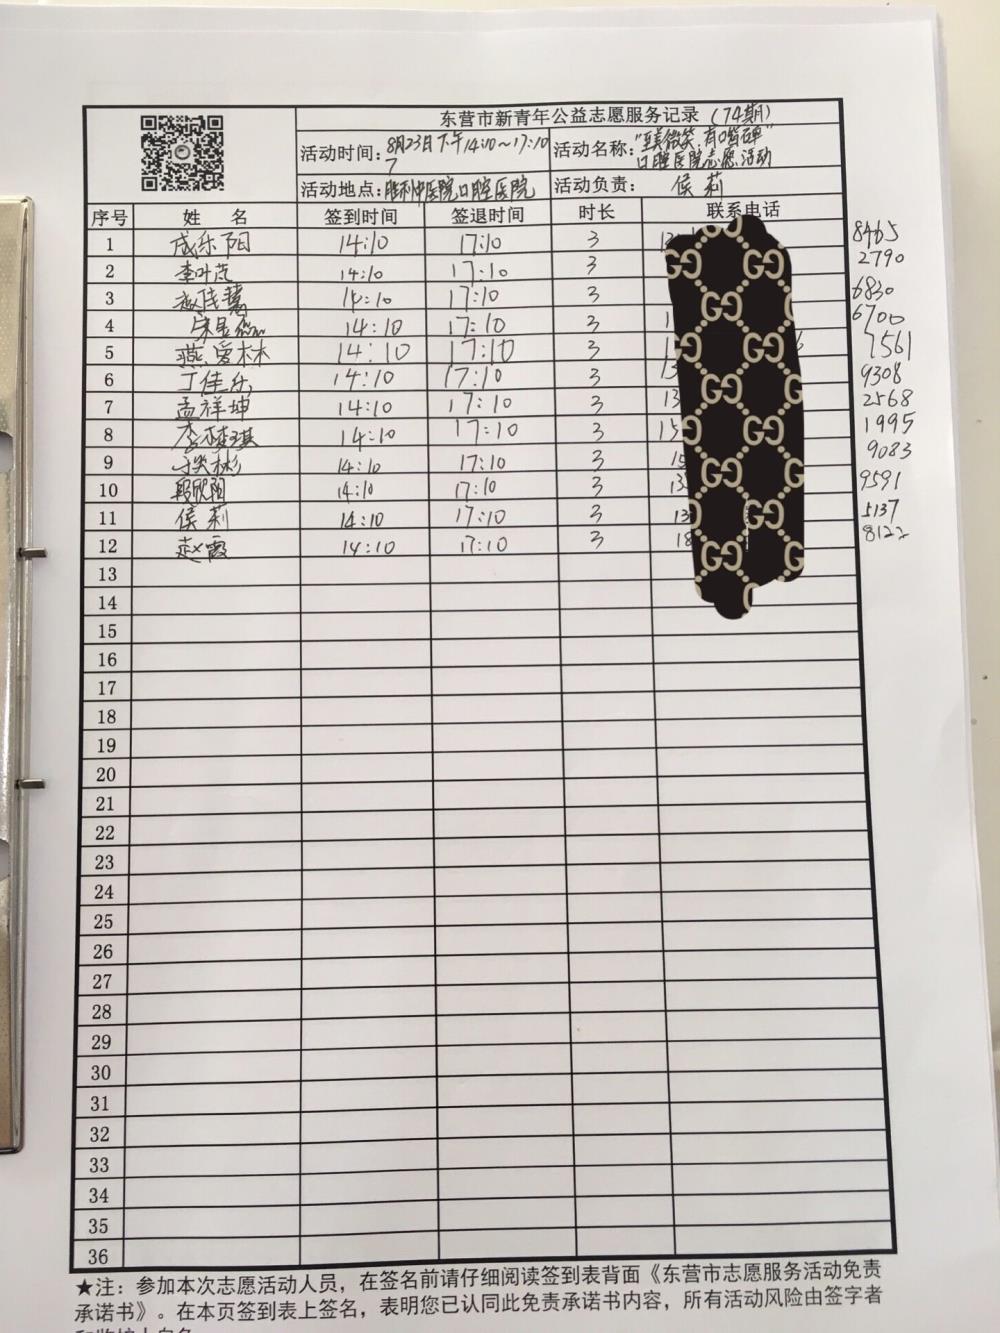 东营市新青年公益志愿服务记录（74期）
活动时间：8月23日下午14:10～17:10 活动名称："至美微笑，有口皆碑"
口腔医院志愿活动
活动地点：胜利中医院口腔医院 活动负责：侯莉
序号 姓 名 签到时间 签退时间 时长 联系电话
1 成乐阳 14:10 17:10 3 8465
2 李叶范 14:10 17:10 3 2790
3 赵佳慧 14:10 17:10 3 6830
4 14:10 17:10 3 6700
5 燕爱林 14:10 17:10 3 7561
6 丁佳乐 14:10 17:10 3 9308
7 孟祥坤 14:10 17:10 3 2568
8 李梓琪 14:10 17:10 3 15 1995
9 14:10 17:10 3 15 9083
10 段欣阳 14:10 17:10 3 13 9591
11 侯莉 14:10 17:10 3 13 5137
12 赵霞 14:10 17:10 3 18 8122
13
14
15
16
17
18
19
20
21
22
23
24
25
26
27
28
29
30
31
32
33
34
35
36
★注：参加本次志愿活动人员，在签名前请仔细阅读签到表背面《东营市志愿服务活动免责
承诺书》。在本页签到表上签名，表明您已认同此免责承诺书内容，所有活动风险由签字者